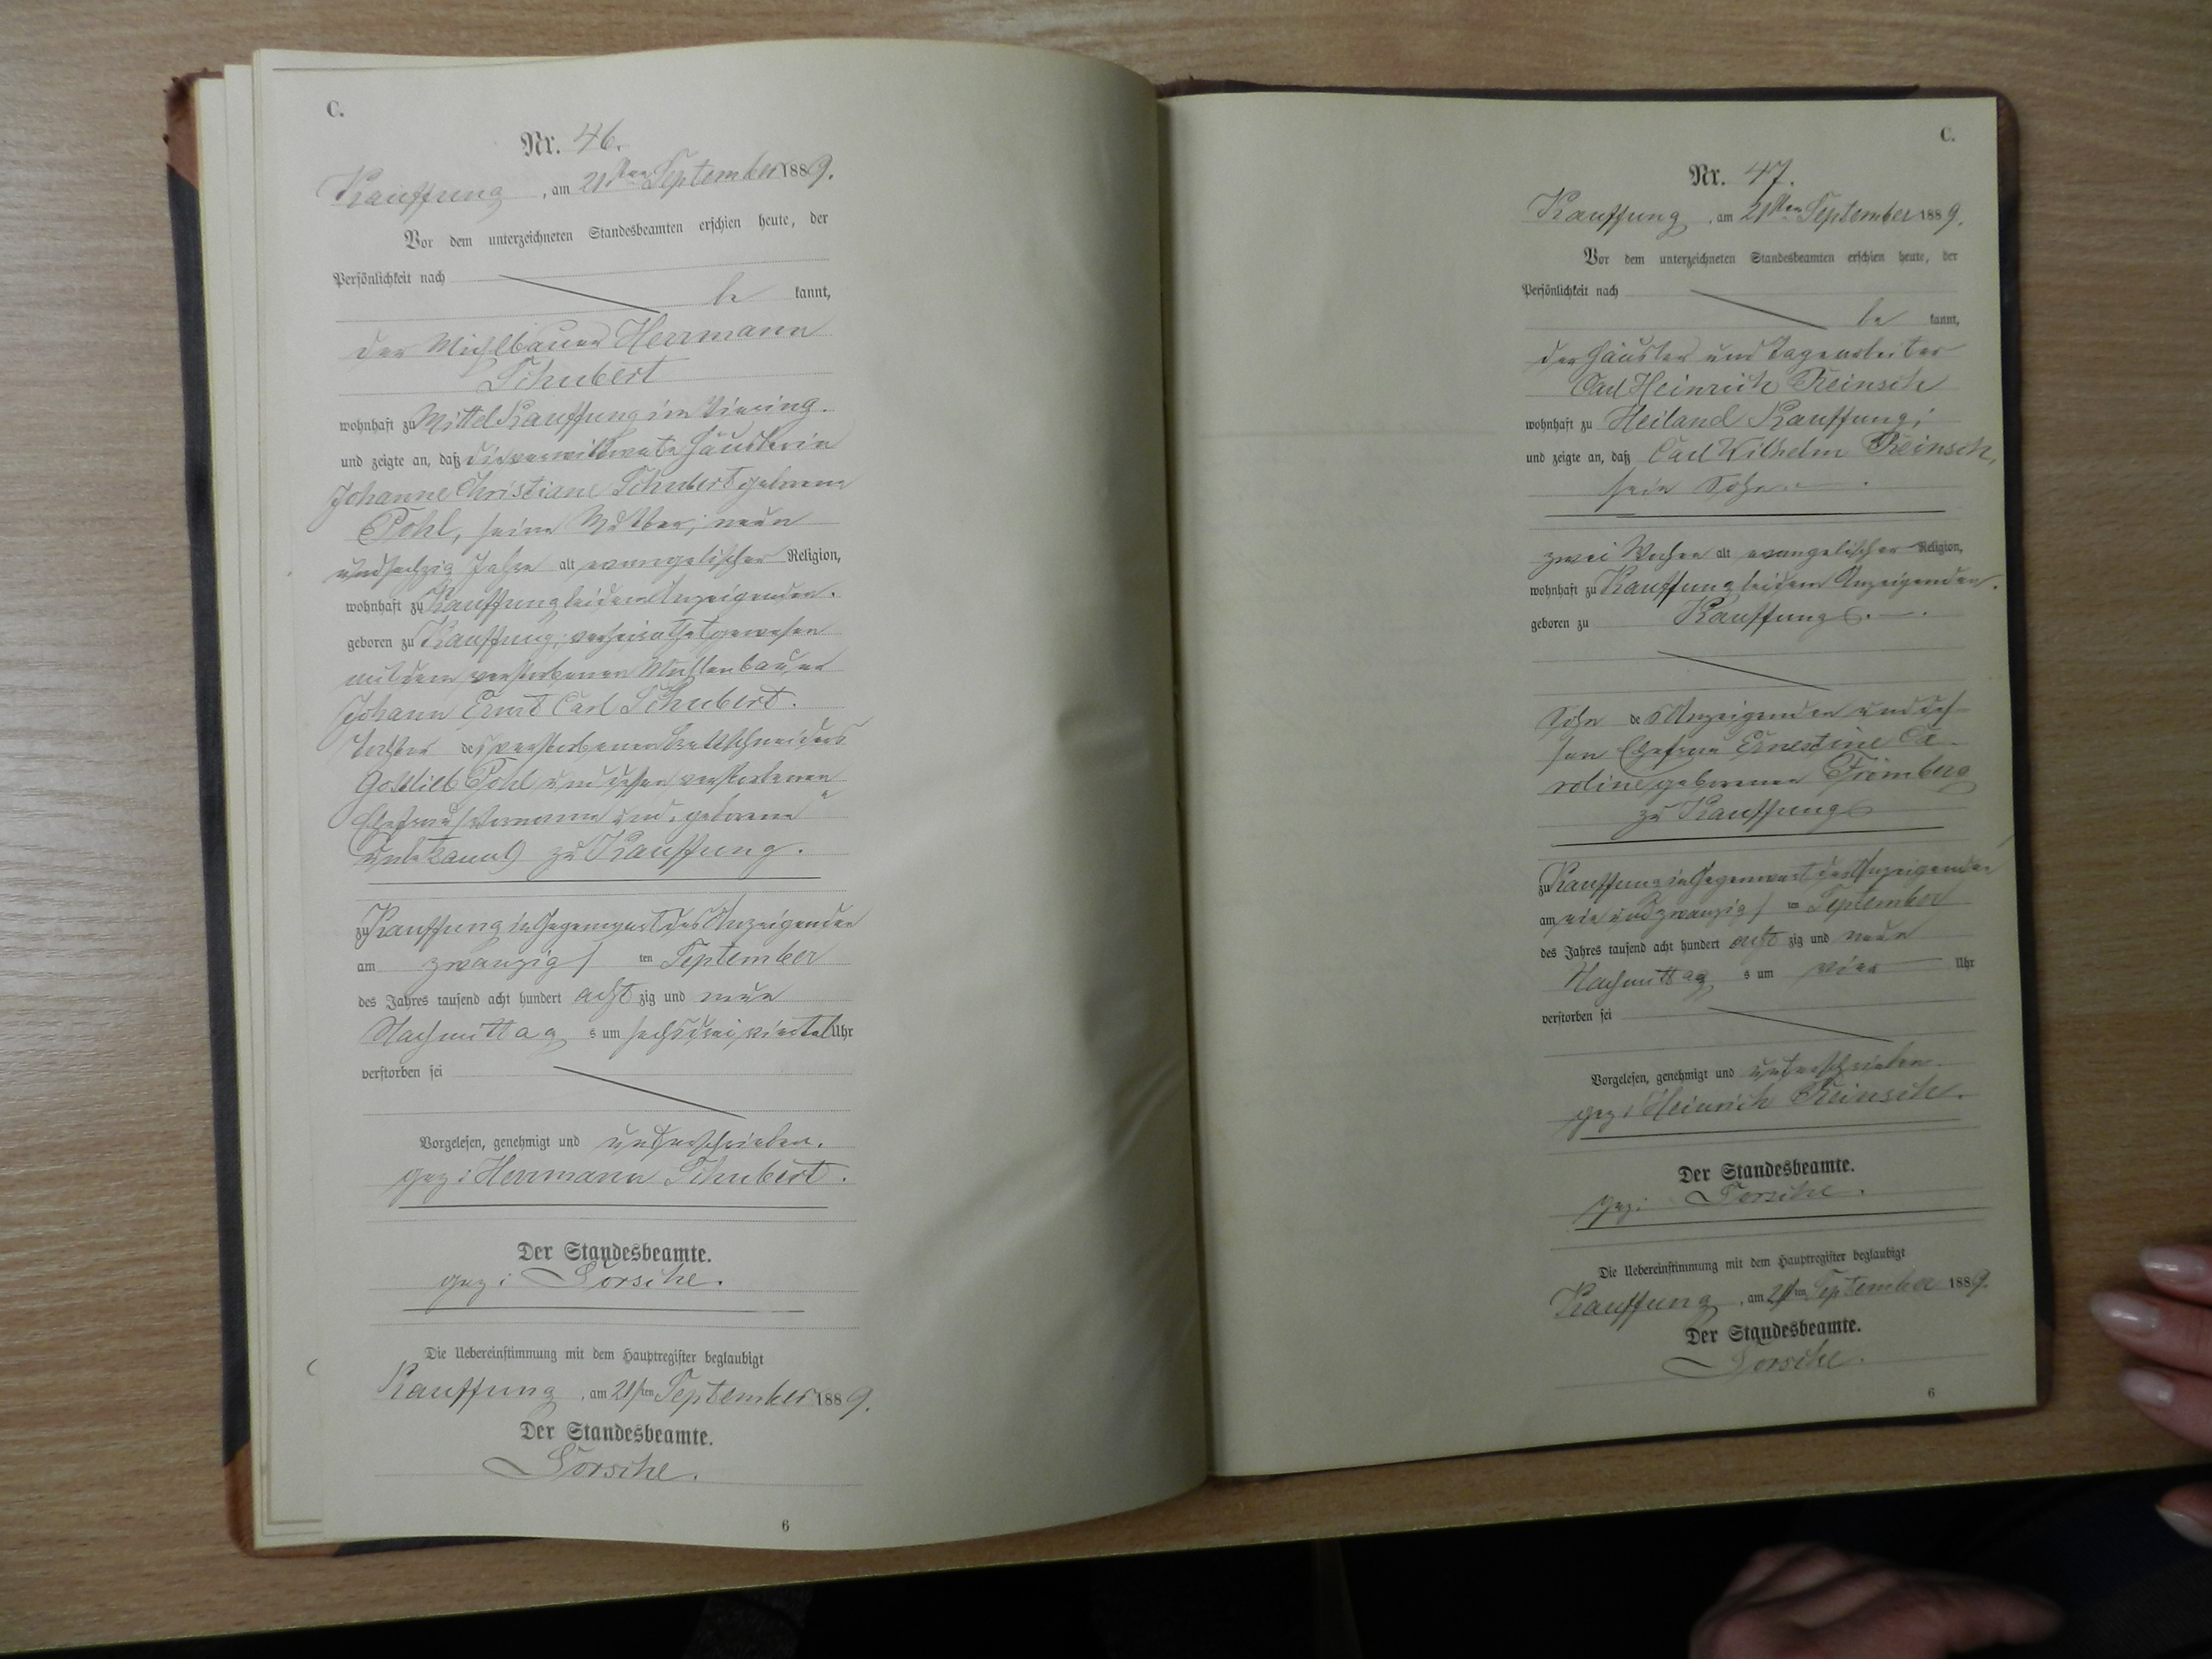 C.
Nr. 46.
Kauffung, am 21ten September 1889.
Vor dem unterzeichneten Standesbeamten erschien heute, der
Persönlichkeit nach
be kannt,
der Mühlbauer Herrmann
Schubert
wohnhaft zu Mittel Kauffung im
und zeigte an, daß die verwittwete Häuslerin
Johanne Christiane Schubert geborene
Pohl, seine Mutter, neun
und sechzig Jahre alt, evangelischer Religion,
wohnhaft zu Kauffung bei dem Anzeigenden.
geboren zu Kauffung, verheirathet gewesen
mit dem verstorbenen Mühlenbauer
Johann Ernst Carl Schubert.
Tochter des verstorbenen Brettschneiders
Gottlieb Pohl und dessen verstorbenen
Ehefrau (Vorname und geborene
unbekannt) zu Kauffung.
zu Kauffung in Gegenwart des Anzeigenden
am zwanzigs ten September
des Jahres tausend acht hundert acht zig und neun
Nachmittag s um sechs drei viertel Uhr
verstorben sei
Vorgelesen, genehmigt und unterschrieben.
gez: Herrmann Schubert.
Der Standesbeamte.
gez: Sorsche.
Die Uebereinstimmung mit dem Hauptregister beglaubigt
Kauffung, am 21ten September 1889.
Der Standesbeamte.
Sorsche.
6
C.
Nr. 47.
Kauffung, am 21ten September 1889.
Vor dem unterzeichneten Standesbeamten erschien heute, der
Persönlichkeit nach
be kannt,
der Häusler und Tagearbeiter
Carl Heinrich Reinsch
wohnhaft zu Heiland Kauffung;
und zeigte an, daß Carl Wilhelm Reinsch,
sein Sohn.
zwei Wochen alt evangelischer Religion,
wohnhaft zu Kauffung bei dem Anzeigenden.
geboren zu Kauffung.
Sohn des Anzeigenden und des-
sen Ehefrau Ernestine Ca-
roline geborenen Frömberg
zu Kauffung
zu Kauffung in Gegenwart des Anzeigenden
am ein und zwanzigs ten September
des Jahres tausend acht hundert acht zig und neun
Nachmittag s um vier Uhr
verstorben sei
Vorgelesen, genehmigt und unterschrieben.
gez: Heinrich Reinsch.
Der Standesbeamte.
gez: Sorsche.
Die Uebereinstimmung mit dem Hauptregister beglaubigt
Kauffung, am 21ten September 1889.
Der Standesbeamte.
Sorsche.
6